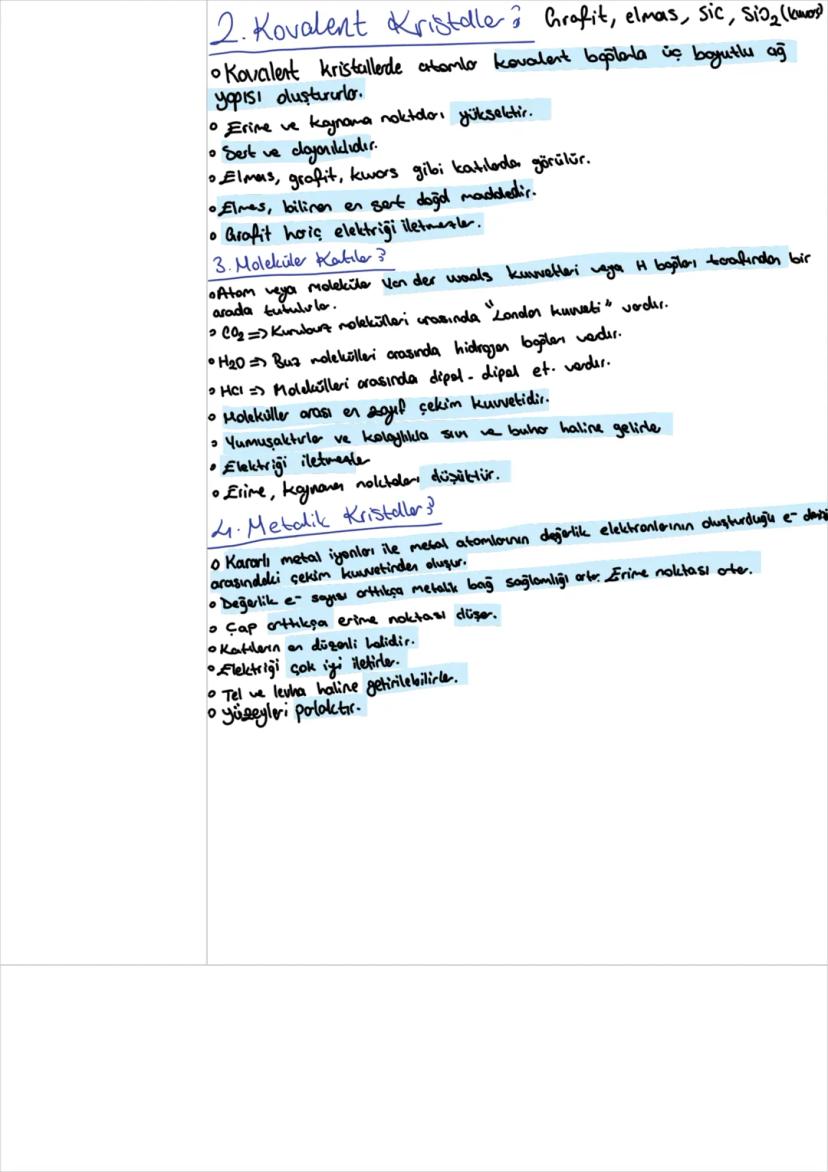 2. Kovalent Kristaller: Grafit, elmas, SiC, SiO2 (kuvars)
• Kovalent kristallerde atomlar kovalent bağlarla üç boyutlu ağ
yapısı oluştururlar.
• Erime ve kaynama noktaları yüksektir.
• Sert ve dayanıklıdır.
• Elmas, grafit, kuvars gibi katılarda görülür.
• Elmas, bilinen en sert doğal maddedir.
• Grafit hariç elektriği iletmezler.
3. Moleküler Katılar:
• Atom veya moleküller Van der waals kuvvetleri veya H bağları tarafından bir
arada tutulurlar.
• CO2 => Kurubuz molekülleri arasında "London kuvveti" vardır.
• H2O => Buz molekülleri arasında hidrojen bağları vardır.
• HCl => Molekülleri arasında dipol - dipol et. vardır.
• Moleküller arası en zayıf çekim kuvvetidir.
• Yumuşaktırlar ve kolaylıkla sıvı ve buhar haline gelirler
• Elektriği iletmezler
• Erime, kaynama noktaları düşüktür.
4. Metalik Kristaller:
• Kararlı metal iyonları ile metal atomlarının değerlik elektronlarının oluşturduğu e- denizi
arasındaki çekim kuvvetinden oluşur.
• Değerlik e- sayısı arttıkça metalik bağ sağlamlığı artar. Erime noktası artar.
• Çap arttıkça erime noktası düşer.
• Katıların en düzenli halidir.
• Elektriği çok iyi iletirler.
• Tel ve levha haline getirilebilirler.
• Yüzeyleri parlaktır.